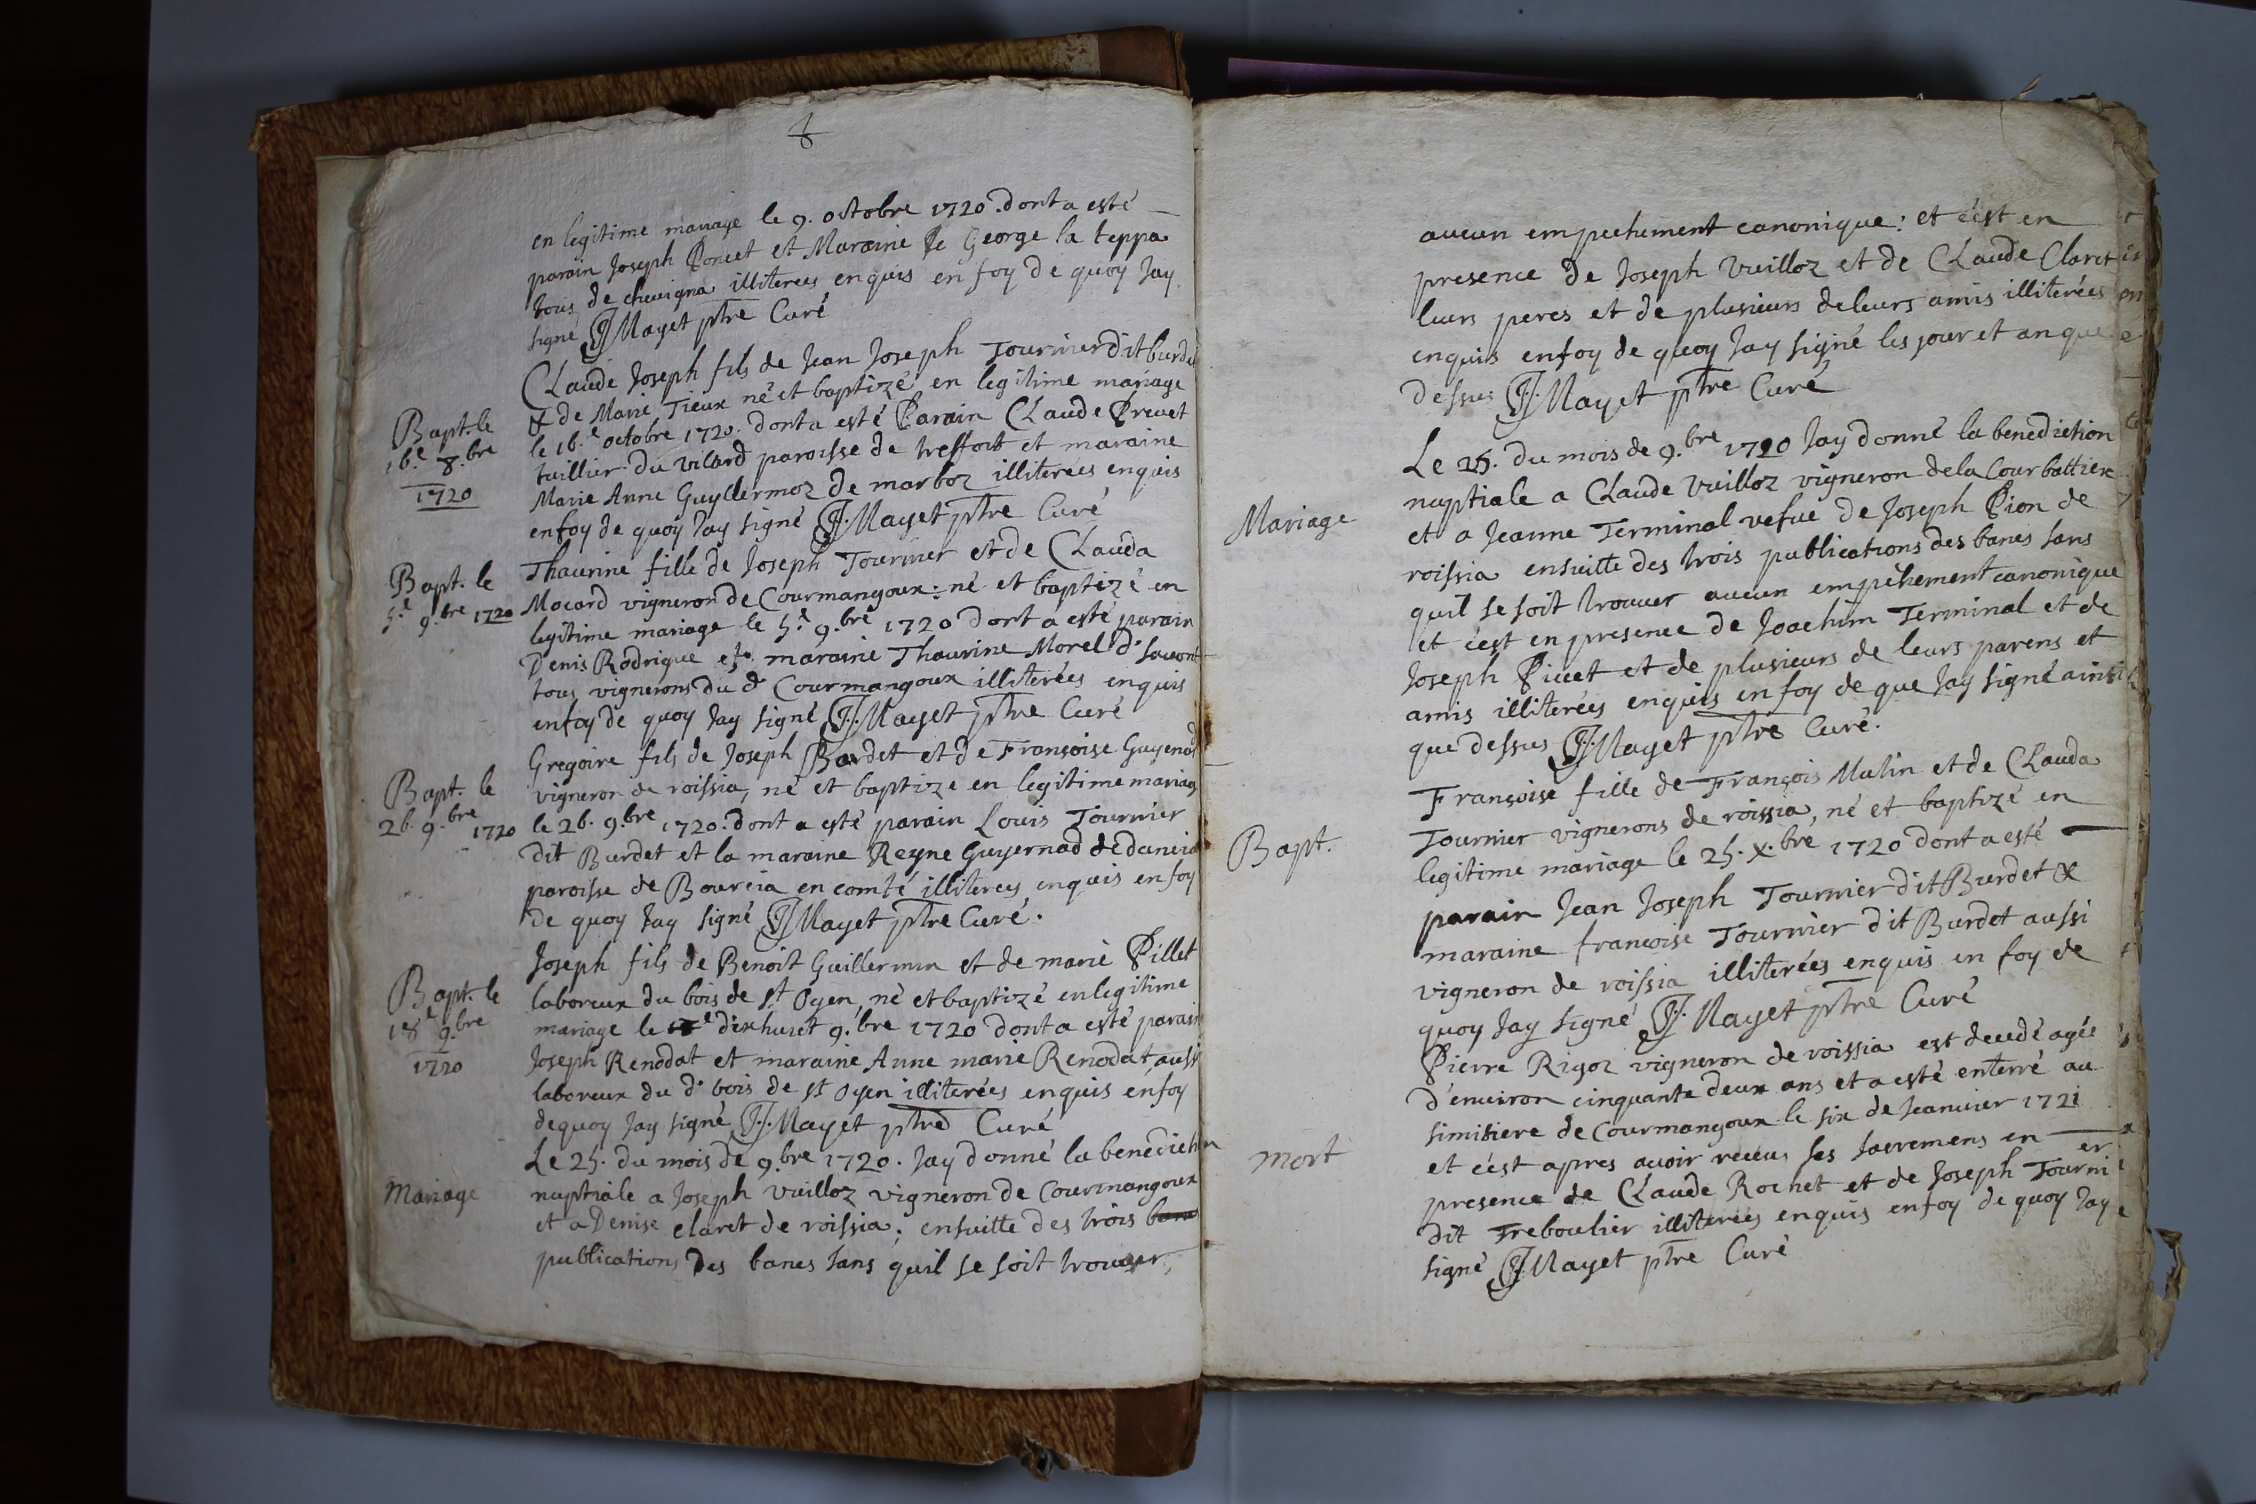 en legitime mariage le 9. octobre 1720. dont a esté
parain Joseph Poncet et Maraine George la teppa
tous de chevigna illiterees enquis en foy de quoy Jay
signé JJ Mayet ptre Curé
Bapt. le
16.e 8.bre
1720
Claude Joseph fils de Jean Joseph Tournier dit burdet
& de Marie Tieux né et baptizé en legitime mariage
le 16.e octobre 1720. dont a esté Parain Claude Prevet
tuillier du vilard paroisse de treffort et maraine
Marie Anne Guyllermoz de marboz illiterees enquis
en foy de quoy Jay signé JJ. Mayet ptre Curé
Bapt. le
5.e 9.bre 1720
Thaurine fille de Joseph Tournier et de Clauda
Mocard vigneron de Courmangoux: né et baptizé en
legitime mariage le 5.e 9.bre 1720 dont a esté parain
Denis Rodrigue et maraine Thaurine Morel
tous vignerons du d. Courmangoux illiterées enquis
en foy de quoy Jay signé JJ. Mayet ptre Curé
Bapt. le
26. 9.bre 1720
Gregoire fils de Joseph Bardet et de Françoise Guyenod
vigneron de roissia, né et baptize en legitime mariage
le 26. 9.bre 1720. dont a esté parain Louis Tournier
dit Burdet et la maraine Reyne Guyernad de
paroisse de Bourcia en comté illiterees enquis en foy
de quoy Jay signé JJ Mayet ptre Curé.
Bapt. le
18.e 9.bre
1720
Joseph fils de Benoit Guillermin et de marie Pillet
laboreux du bois de st Oyen, né et baptizé en legitime
mariage le dixhuict 9.bre 1720 dont a esté parain
Joseph Renodat et maraine Anne marie Renodat, aussi
laboreux du d. bois de st Oyen illiterées enquis en foy
de quoy Jay signé JJ. Mayet ptre Curé
Mariage
Le 25. du mois de 9.bre 1720. Jay donné la benediction
nuptiale a Joseph vuilloz vigneron de Courmangoux
et a Denise claret de roissia; ensuitte des trois bans
publications des bancs sans quil se soit trouver
aucun empechement canonique: et c'est en
presence de Joseph Vuilloz et de Claude Claret
leurs peres et de plusieurs de leurs amis illiterées
enquis en foy de quoy Jay signé les jour et an que
dessus JJ. Mayet ptre Curé
Mariage
Le 25. du mois de 9.bre 1720 Jay donné la benediction
nuptiale a Claude Vuilloz vigneron de la Courbattiere
et a Jeanne Terminal vefue de Joseph Pion de
roissia ensuitte des trois publications des bancs sans
quil se soit trouver aucun empêhement canonique
et c'est en presence de Joachim Terminal et de
Joseph Pivet et de plusieurs de leurs parens et
amis illiterées enquis en foy de que Jay signé ainsi
que dessus JJ Mayet ptre Curé.
Bapt.
Françoise fille de François Mulin et de Clauda
Tournier vignerons de roissia, né et baptizé en
legitime mariage le 25. x.bre 1720 dont a esté
parain Jean Joseph Tournier dit Burdet &
maraine francoise Tournier dit Burdet aussi
vigneron de roissia illiterées enquis en foy de
quoy Jay signé JJ. Mayet ptre Curé
mort
Pierre Rigoz vigneron de roissia est decedé agée
d'environ cinquante deux ans et a esté enterré au
simitiere de Courmangoux le six de Jeanvier 1721
et c'est apres avoir receus ses sacremens en
presence de Claude Rochet et de Joseph Tournier
dit Treboulier illiterées enquis en foy de quoy Jay
signé JJ Mayet ptre Curé